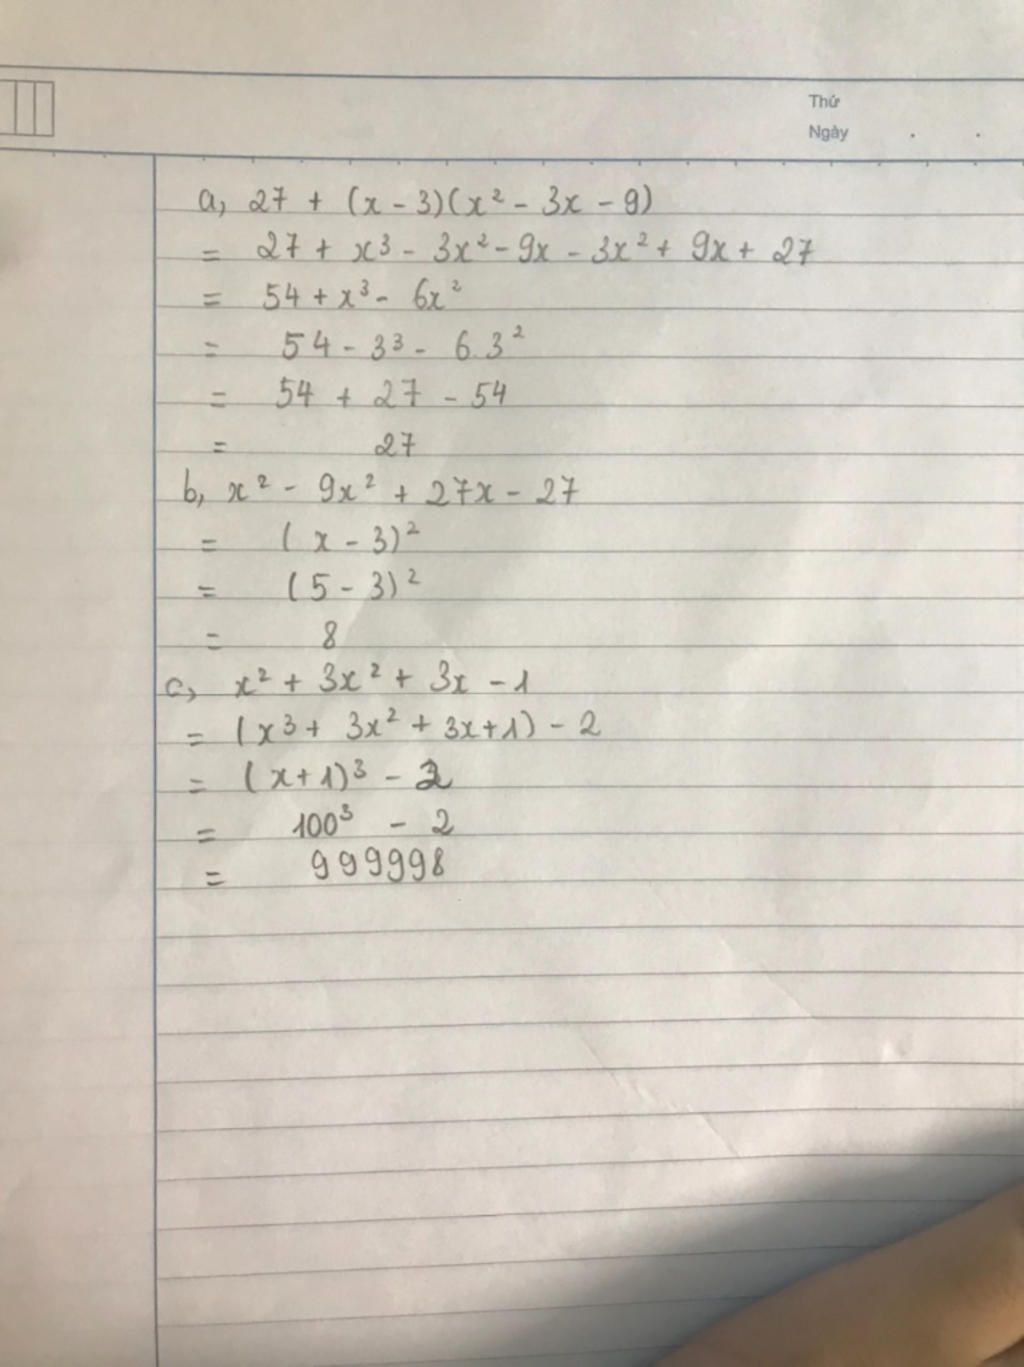 Thứ
Ngày
a, 27 + (x - 3)(x² - 3x - 9)
= 27 + x³ - 3x² - 9x - 3x² + 9x + 27
= 54 + x³ - 6x²
= 54 - 3³ - 6.3²
= 54 + 27 - 54
= 27
b, x² - 9x² + 27x - 27
= (x - 3)²
= (5 - 3)²
= 8
c, x² + 3x² + 3x - 1
= (x³ + 3x² + 3x + 1) - 2
= (x + 1)³ - 2
= 100³ - 2
= 999998